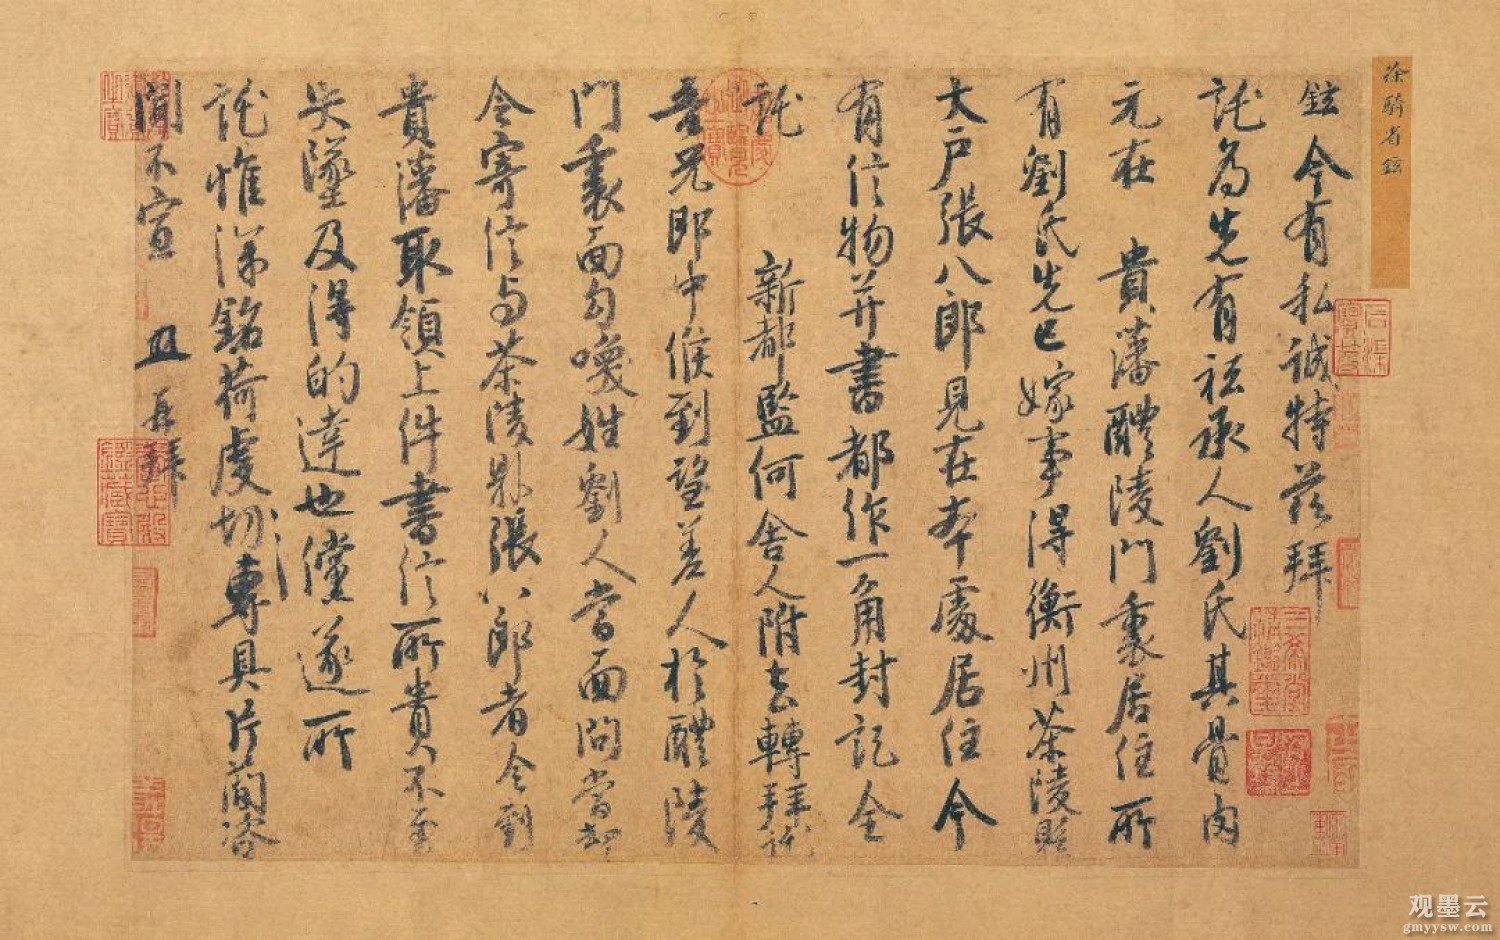 徐騎省鉉
鉉今有私誠特茲拜
託為先有祗承人劉氏其骨肉
元在 貴藩醴陵門裏居住所
有劉氏先已嫁事得衡州茶陵縣
大戶張八郎見在本處居住今
有信物并書都作一角封記全
託 新都監何舍人附去轉拜託
吾兄郎中候到望差人於醴陵
門裏面勾喚姓劉人當面問當却
令寄信与茶陵縣張八郎者令到
貴藩取領上件書信所貴不至
失墜及得的達也儻遂所
託惟深銘荷虔切專具片簡咨
聞不宣 再拜
石渠寶笈
三希堂精鑑璽
嘉慶御覽之寶
观墨云
gmyysw.com